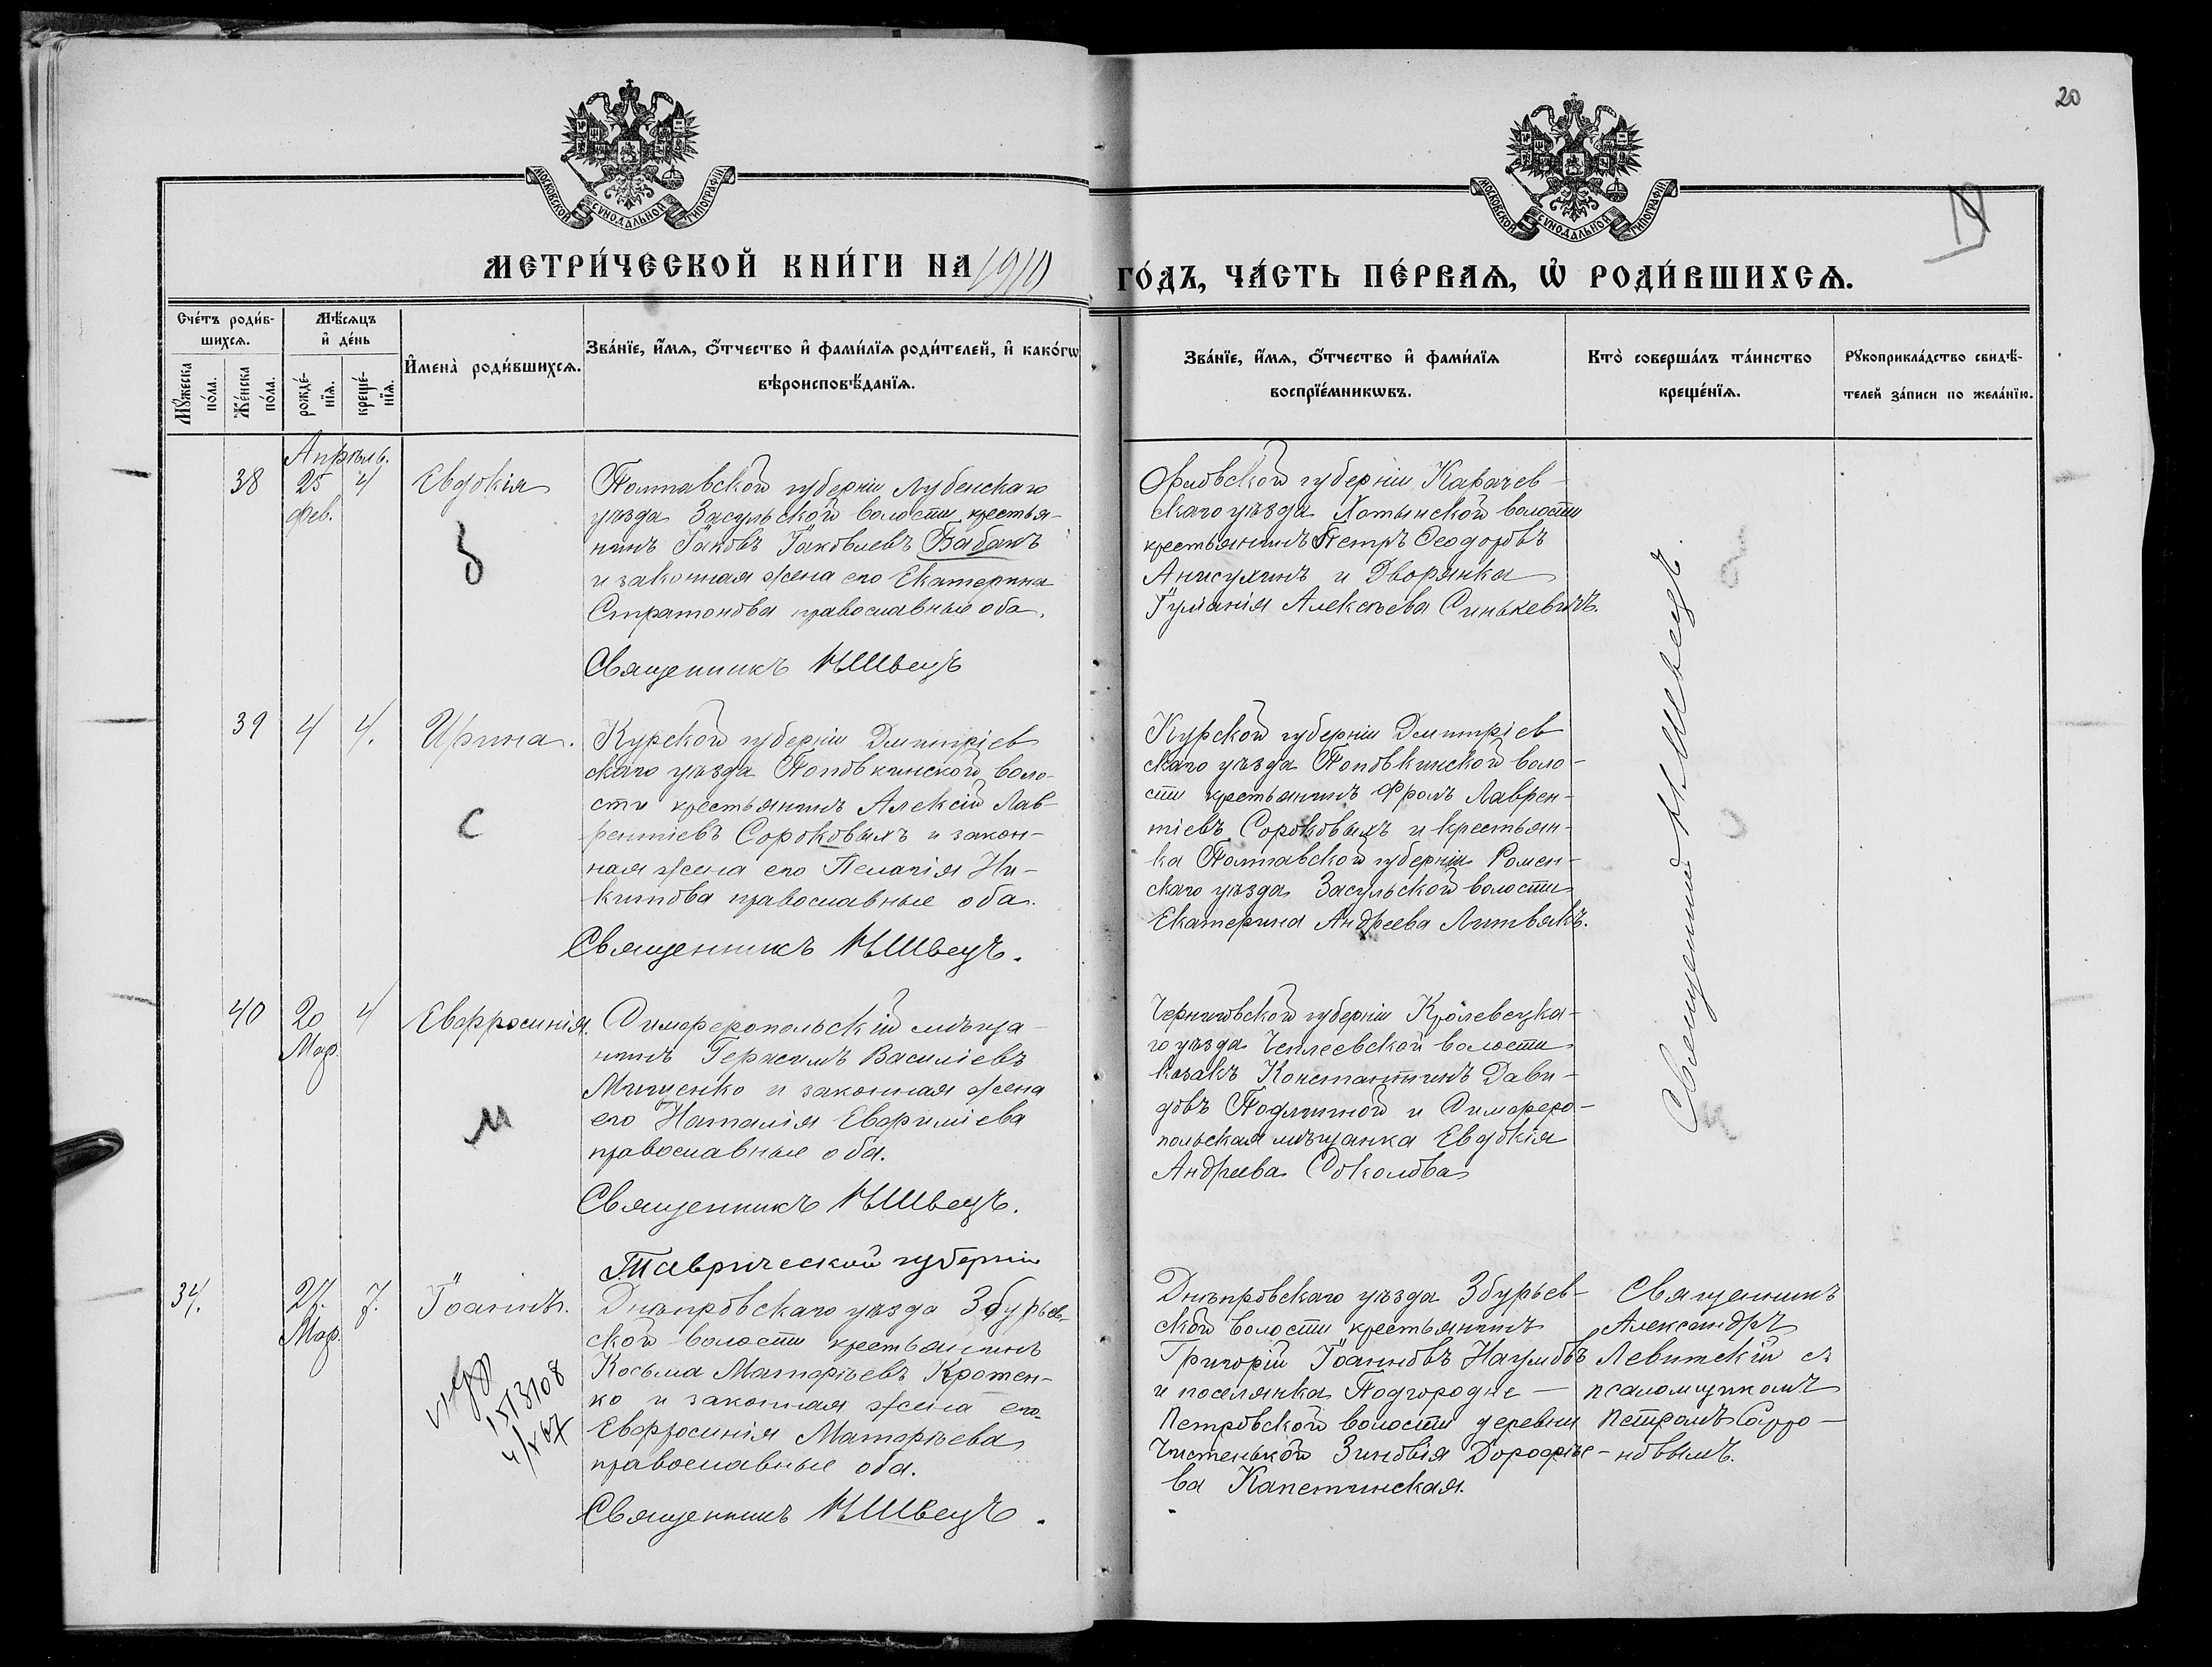 20
19
МОСКОВСКОЙ СУНОДАЛЬНОЙ ТИПОГРАФІИ
МОСКОВСКОЙ СУНОДАЛЬНОЙ ТИПОГРАФІИ
МЕТРИ́ЧЕСКОЙ КНИ́ГИ НА 1910
ГО́ДЪ, ЧА́СТЬ ПЕ́РВАѦ, Ѽ РОДИ́ВШИХСѦ.
Сче́тъ роди́в-
шихсѧ.
Мꙋ́жеска по́ла.
Же́нска по́ла.
Мѣ́сѧцъ
и҆ де́нь
рожде́-
нїѧ.
креще́-
нїѧ.
И҆мена̀ роди́вшихсѧ.
Зва́нїе, и҆́мѧ, ѻ҆́тчество и҆ фами́лїѧ роди́телей, и҆ како́гѡ
вѣроисповѣ́данїѧ.
Зва́нїе, и҆́мѧ, ѻ҆́тчество и҆ фами́лїѧ
воспрїе́мникѡвъ.
Кто̀ соверша́лъ та́инство
креще́нїѧ.
Рꙋкоприкла́дство свидѣ́-
телей за́писи по жела́нїю.
Апрѣль.
38 25 4 Евдокія
Фев.
б
Полтавской губерніи Лубенскаго
уѣзда Засульской волости крестья-
нинъ Іаковъ Іаковлевъ Бабакъ
и законная жена его Екатерина
Стратонова православные оба.
Священникъ Н Швецъ
Орловской губерніи Карачев-
скаго уѣзда Хотынской волости
крестьянинъ Петръ Ѳеодоровъ
Анисухинъ и Дворянка
Іуліанія Алексѣева Синькевичъ.
Священникъ Н Швецъ.
39 4 4. Ирина.
с
Курской губерніи Дмитріев
скаго уѣзда Поповкинской воло-
сти крестьянинъ Алексій Лав-
рентіевъ Сороковыхъ и закон-
ная жена его Пелагія Ни-
китова православные оба.
Священникъ Н Швецъ.
Курской губерніи Дмитріев
скаго уѣзда Поповкинской воло-
сти крестьянинъ Фролъ Лаврен-
тіевъ Сороковыхъ и крестьян-
ка Полтавской губерніи Ромен-
скаго уѣзда Засульской волости
Екатерина Андреева Литвякъ.
40 20 4 Евфросинія.
Мар.
м
Симферопольскій мѣща-
нинъ Герасимъ Василіевъ
Мищенко и законная жена
его Наталія Евфиміева
православные оба.
Священникъ Н Швецъ.
Черниговской губерніи Кролевецка-
го уѣзда Чеплеевской волости
козакъ Константинъ Дави-
довъ Подлипной и Симферо-
польская мѣщанка Евдокія
Андреева Соколова
34. 27. 7. Іоаннъ.
Мар.
1513108
Таврической губерніи
Днѣпровскаго уѣзда Збурьев-
ской волости крестьянинъ
Косьма Матфѣевъ Кротен-
ко и законная жена его
Евфросинія Матфѣева
православные оба.
Священникъ Н Швецъ.
Днѣпровскаго уѣзда Збурьев-
ской волости крестьянинъ
Григорій Іоанновъ Наумовъ
и поселянка Подгородне-
Петровской волости деревни
Чистенькой Зиновія Дорофѣе-
ва Капетинская.
Священникъ
Александръ
Левитскій съ
псаломщикомъ
Петромъ Сафо-
новымъ.